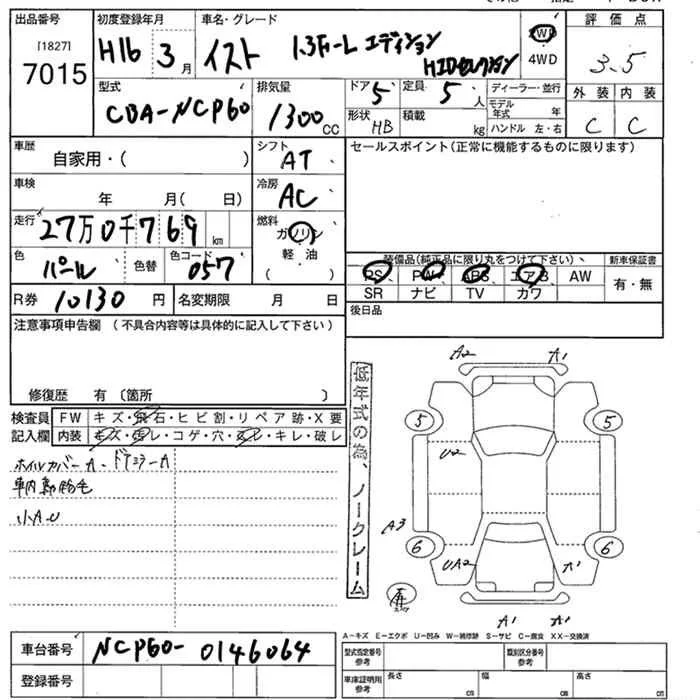 出品番号 初度登録年月 車名・グレード 評価点
[1827]
7015 H16 3月 イスト 1.3F-L エディション 2WD 3.5
HIDセレクション 4WD
型式 排気量 ドア 定員 ディーラー・並行 外装 内装
CBA-NCP60 1300 CC 5 5 人 モデル年式 年 C C
形状 HB 積載 kg ハンドル 左・右
車歴 シフト セールスポイント(正常に機能するものに限ります)
自家用・( ) AT
車検 冷房
年 月( 日) AC
走行 燃料
27万0千769 km ガソリン
色 色替 色コード 軽油
パール 057 ( )
装備品(純正品に限り丸をつけて下さい) 新車保証書
PS PW ABS エアB AW 有・無
SR ナビ TV カワ
R券 10130 円 名変期限 月 日 後日品
注意事項申告欄 (不具合内容等は具体的に記入して下さい)
修復歴 有 〔箇所 〕
検査員 FW キズ・飛石・ヒビ割・リペア跡・X要
記入欄 内装 キズ・汚レ・コゲ・穴・スレ・キレ・破レ
ホイルカバーA・ドアミラーA
小AU
低年式の為、ノークレーム
A2 A1
5 5
U2
A3
6 6
UA2 A1
A1 A1
A-キズ E-エクボ U-凹み W-補修跡 S-サビ C-腐食 XX-交換済
車台番号 NCP60-0146064
登録番号
型式指定番号 参考 類別区分番号 参考
車庫証明用 参考 長さ cm 幅 cm 高さ cm